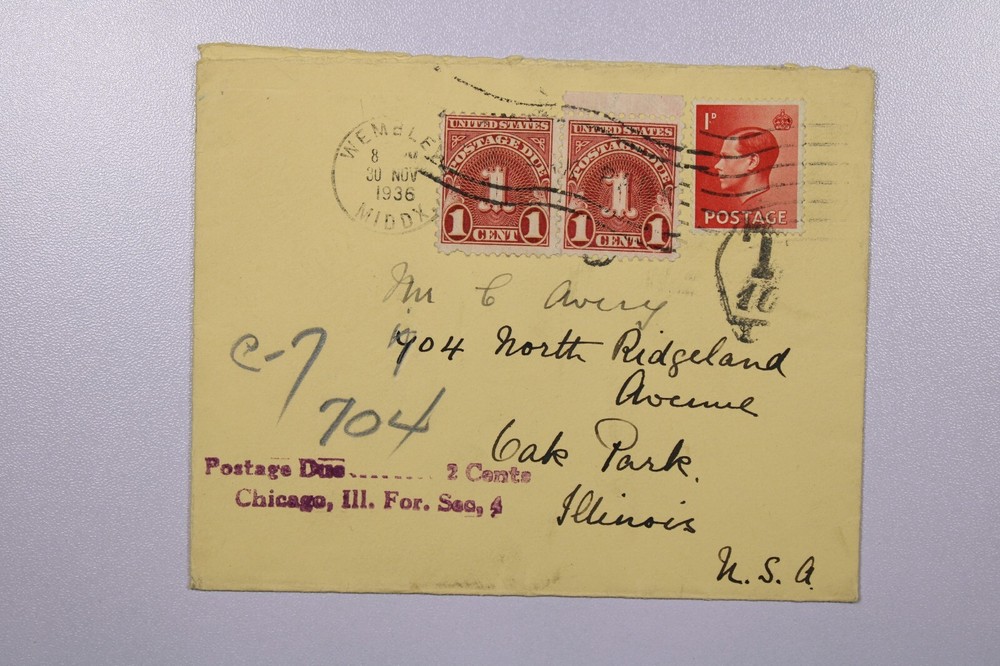 WEMBLEY
8
30 NOV
1936
MIDDX
UNITED STATES
POSTAGE DUE
1
1 CENT 1
UNITED STATES
POSTAGE DUE
1
1 CENT 1
1D
POSTAGE
T
10
Mr C Avery
704 North Ridgeland
Avenue
Oak Park.
Illinois
U.S.A.
C-7
704
Postage Due........ 2 Cents
Chicago, Ill. For. Sec. 4